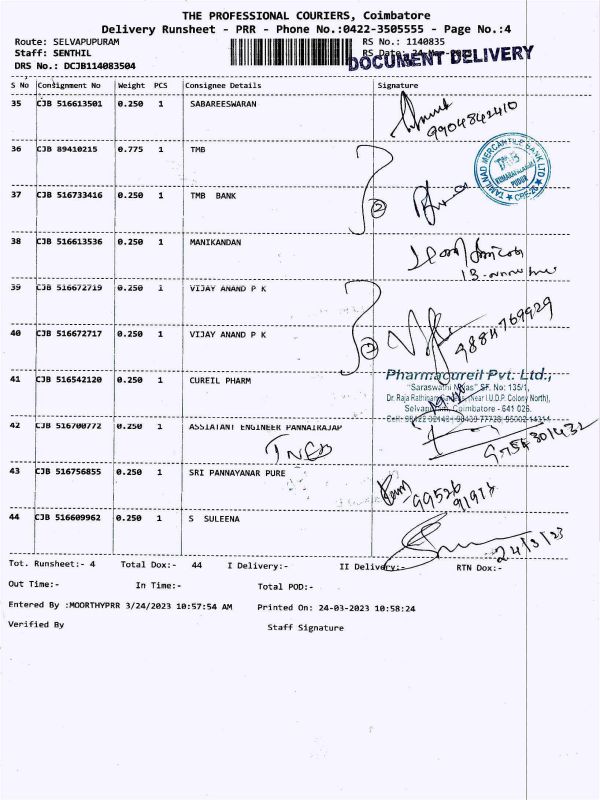 THE PROFESSIONAL COURIERS, Coimbatore
Delivery Runsheet - PRR - Phone No.:0422-3505555 - Page No.:4
Route: SELVAPUPURAM RS No.: 1140835
Staff: SENTHIL RS Date: 24-Mar-2023
DOCUMENT DELIVERY
DRS No.: DCJB114083504
S No Consignment No Weight PCS Consignee Details Signature
35 CJB 516613501 0.250 1 SABAREESWARAN
9904842410
36 CJB 89410215 0.775 1 TMB
TAMILNAD MERCANTILE BANK LTD
37 CJB 516733416 0.250 1 TMB BANK
2
38 CJB 516613536 0.250 1 MANIKANDAN
39 CJB 516672719 0.250 1 VIJAY ANAND P K
40 CJB 516672717 0.250 1 VIJAY ANAND P K
9884769929
41 CJB 516542120 0.250 1 CUREIL PHARM
Pharmacureil Pvt. Ltd.,
"Saraswathi Nivas" SF. No: 135/1,
Dr. Raja Rathinam Gardens, (Near I.U.D.P. Colony North),
Selvapuram, Coimbatore - 641 026.
42 CJB 516700772 0.250 1 ASSIATANT ENGINEER PANNAIRAJAP
TNEB
43 CJB 516756855 0.250 1 SRI PANNAYANAR PURE
99526
44 CJB 516609962 0.250 1 S SULEENA
24/3/23
Tot. Runsheet:- 4 Total Dox:- 44 I Delivery:- II Delivery:- RTN Dox:-
Out Time:- In Time:- Total POD:-
Entered By :MOORTHYPRR 3/24/2023 10:57:54 AM Printed On: 24-03-2023 10:58:24
Verified By Staff Signature